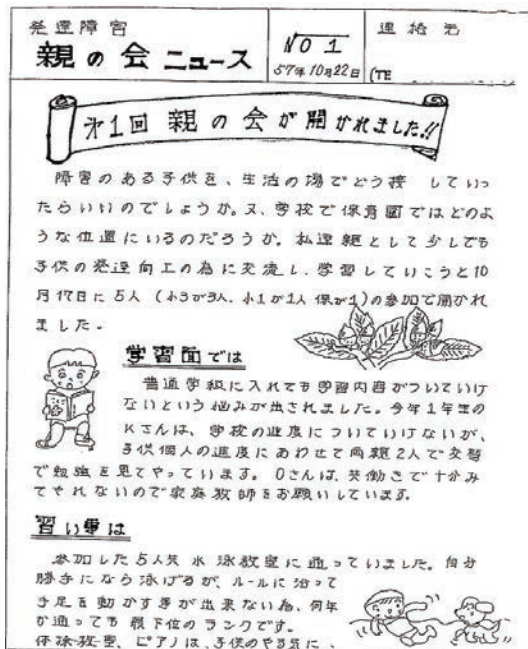 発達障害
親の会ニュース
NO 1
57年10月22日
連絡先
(TE
第1回 親の会が開かれました!!
障害のある子供を、生活の場でどう接 していっ
たらいいのでしょうか。又、学校で保育園ではどのよ
うな位置にいるのだろうか。私達親として少しでも
子供の発達向上の為に交流し、学習していこうと10
月17日に5人 (小3が3人、小1が1人 保が1)の参加で開かれ
ました。
学習面では
普通学級に入れても学習内容がついていけ
ないという悩みが出されました。今年1年生の
Kさんは、学校の進度についていけないが、
子供個人の進度にあわせて両親2人で交替
で勉強を見てやっています。Oさんは、共働きで十分み
てやれないので家庭教師をお願いしています。
習い事は
参加した5人共 水泳教室に通っていました。自分
勝手になら泳げるが、ルールに沿って
手足を動かす事が出来ない為、何年
か通っても最下位のランクです。
体操教室、ピアノは、子供のやる気に、